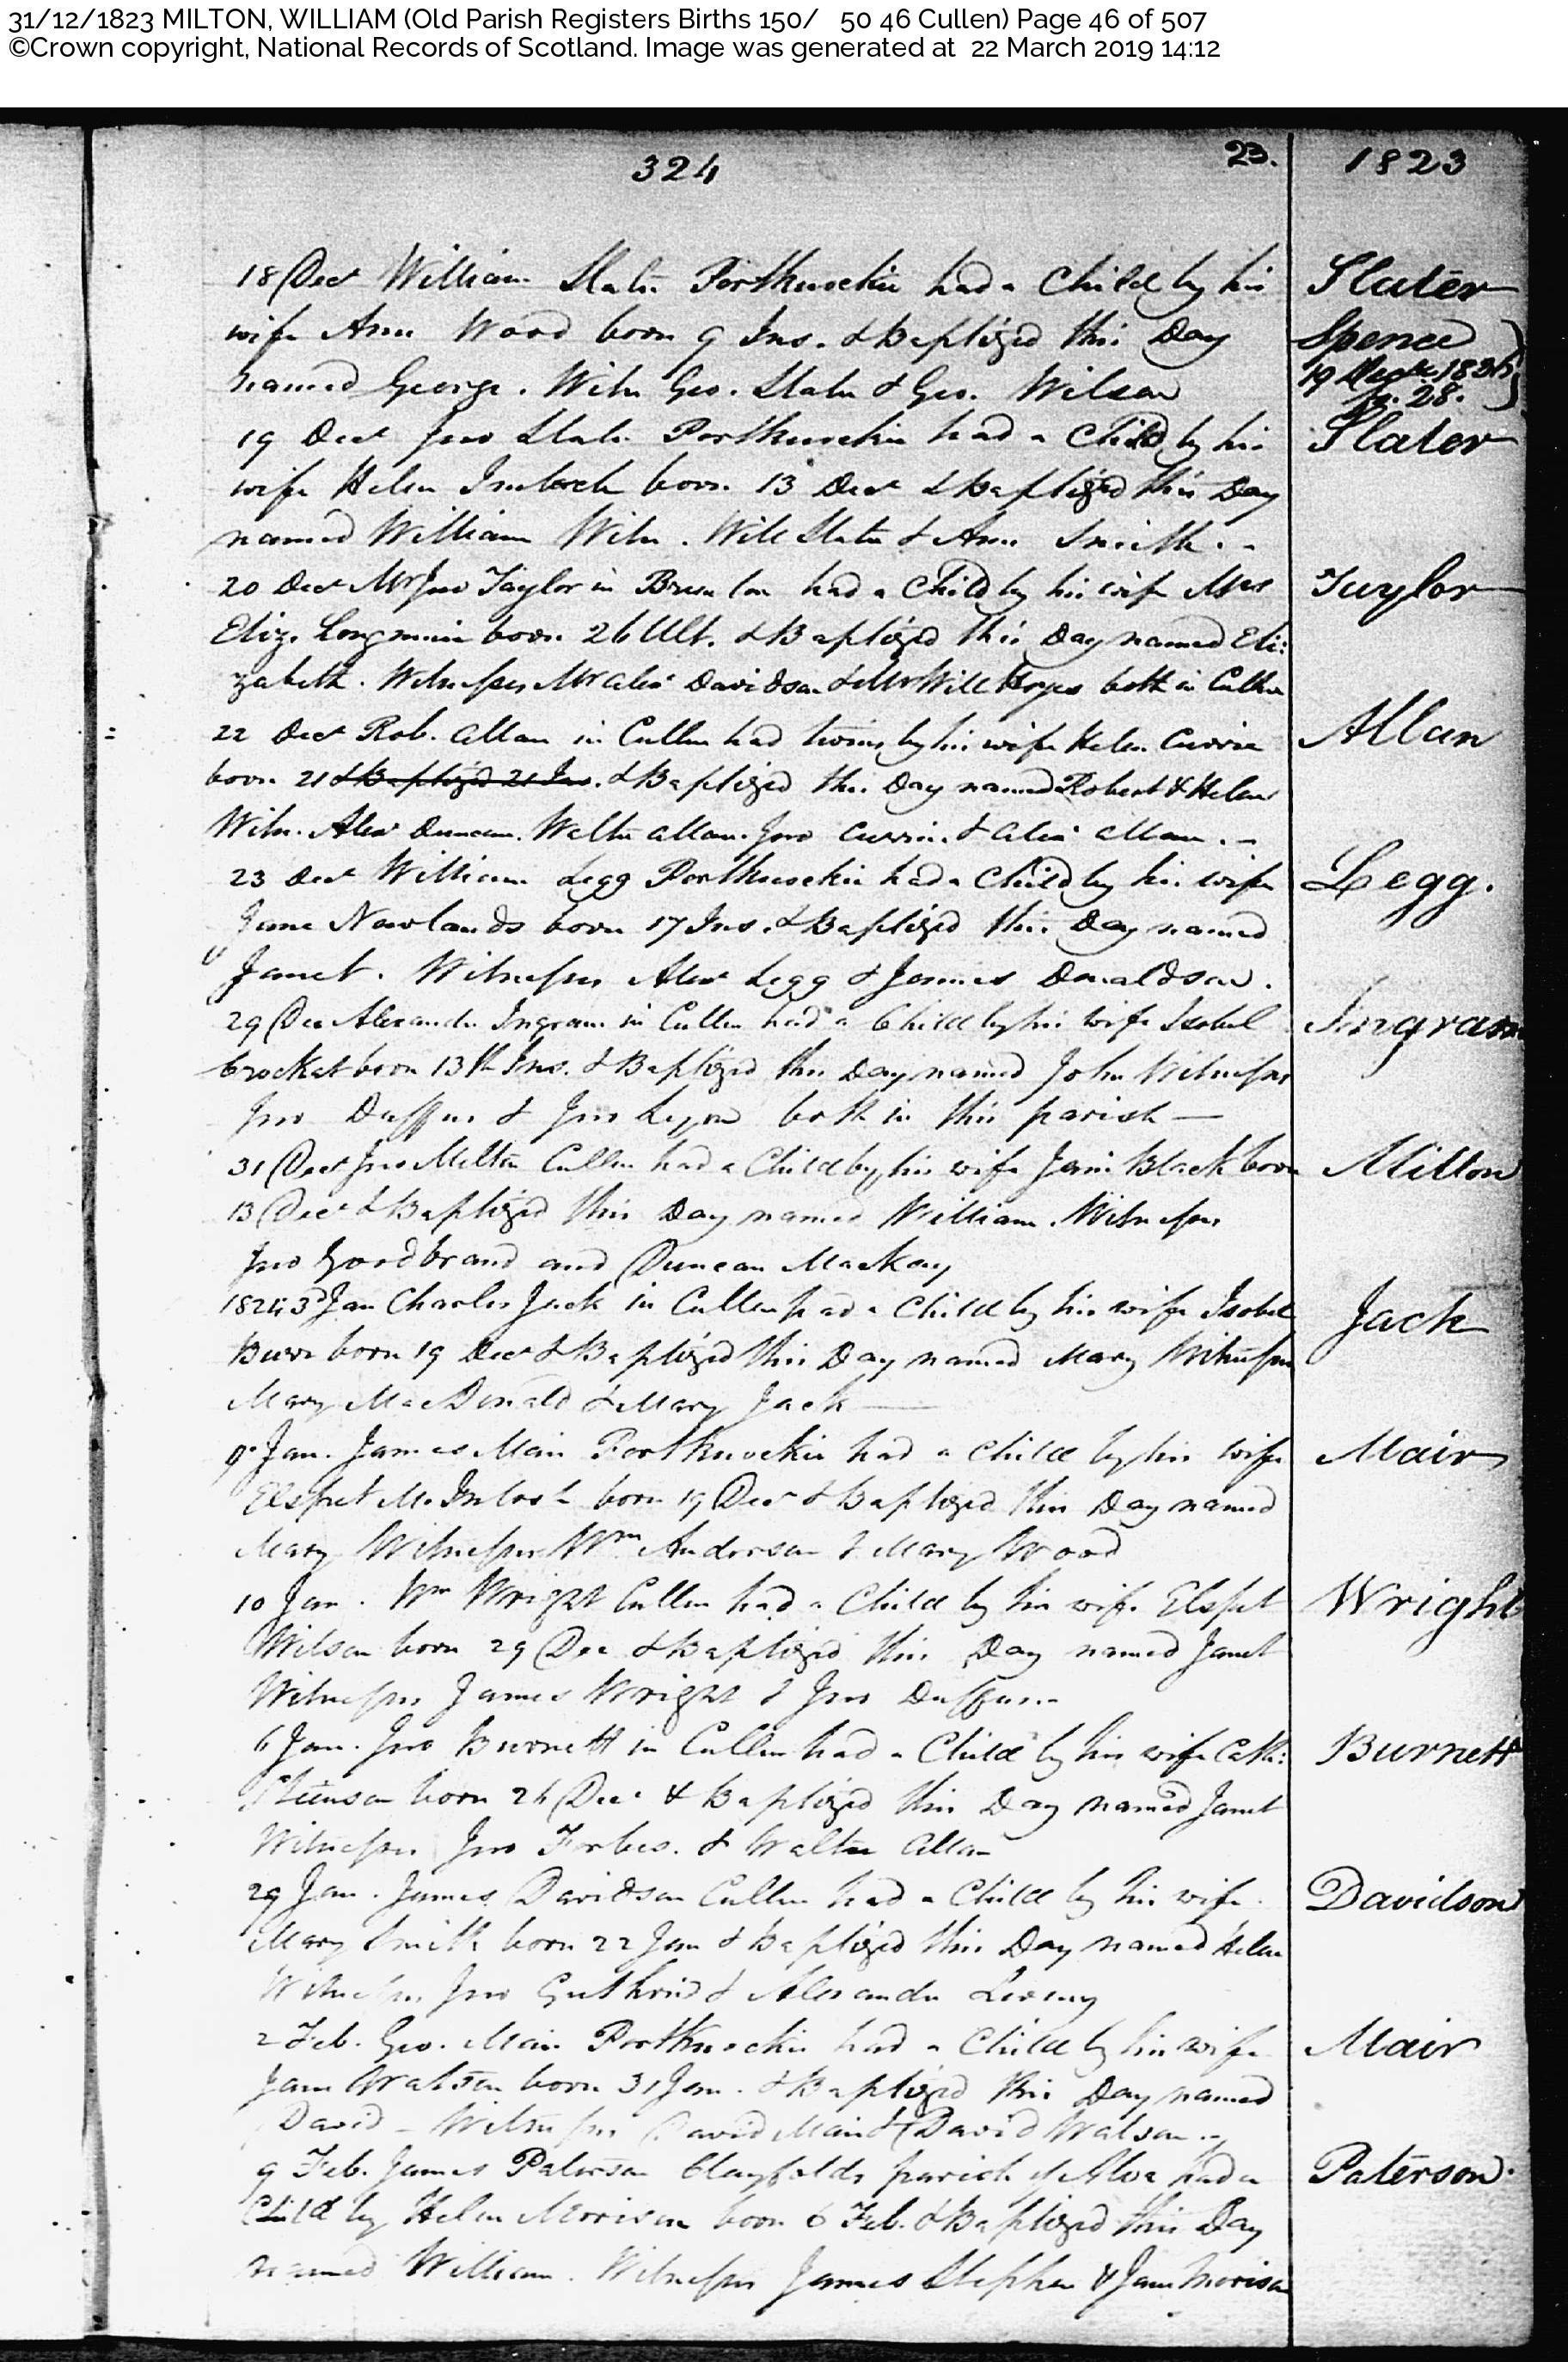 31/12/1823 MILTON, WILLIAM (Old Parish Registers Births 150/ 50 46 Cullen) Page 46 of 507
©Crown copyright, National Records of Scotland. Image was generated at 22 March 2019 14:12
324 23. 1823
18 Decr William Slater Portknockie had a Child by his Slater
wife Ann Wood born 9 Ins. & Baptized this Day Spence
named George. Witn Geo. Slater & Geo. Wilson 19 1824 28.
19 Decr Jno Slater Portknockie had a Child by his Slater
wife Helen Imlach born 13 Decr & Baptized this Day
named William Witn. Will Slater & Ann Smith. -
20 Decr Mr Jno Taylor in had a Child by his wife Mrs Taylor
Eliz. Longmuir born 26 Ult. & Baptized this Day named Eli:
zabeth. Witnesses Mr Alexr Davidson & Mr Will both in Cullen
22 Decr Rob. Allan in Cullen had twins by his wife Helen Currie Allan
born 21 & Baptized 21 Ins. & Baptized this Day named Robert & Helen
Witn. Alexr Duncan. Walter Allan. Jno Currie. & Alexr Allan. -
23 Decr William Legg Portknockie had a Child by his wife Legg.
Jane Newlands born 17 Ins. & Baptized this Day named
Janet. Witnesses Alexr Legg & James Donaldson.
29 Dec Alexander Ingram in Cullen had a Child by his wife Isobel Ingram
Crocket born 13th Ins. & Baptized this Day named John Witnesses
Jno Duffus & Jno Lyon both in this parish —
31 Decr Jno Milton Cullen had a Child by his wife Jean Black born Milton
13 Decr & Baptized this Day named William. Witnesses
Jno Goodbrand and Duncan MacKay
1824 3d Jan Charles Jack in Cullen had a Child by his wife Isobel Jack
born 19 Decr & Baptized this Day named Mary Witnesses
Mary MacDonald & Mary Jack —
9. Jan. James Mair Portknockie had a Child by his wife Mair
Elspet McIntosh born 19 Decr & Baptized this Day named
Mary Witnesses Wm Anderson & Mary Wood
10 Jan. Wm Wright Cullen had a Child by his wife Elspet Wright
Wilson born 29 Dec & Baptized this Day named Janet
Witnesses James Wright & Jno Duffus. -
6 Jan. Jno Burnett in Cullen had a Child by his wife Cath: Burnett
born 26 Decr & Baptized this Day named Janet
Witnesses Jno Forbes. & Walter Allan
29 Jan. James Davidson Cullen had a Child by his wife Davidson
Mary Smith born 22 Jan & Baptized this Day named Helen
Witnesses Jno Guthrie & Alexander
2 Feb. Geo. Mair Portknockie had a Child by his wife Mair
Jane Watson born 31 Jan. & Baptized this Day named
David - Witnesses David Mair & David Watson. -
9 Feb. James Paterson Clayfolds parish of Alva had a Paterson.
Child by Helen Morison born 6 Feb. & Baptized this Day
named William. Witnesses James Stephen & Jane Morison